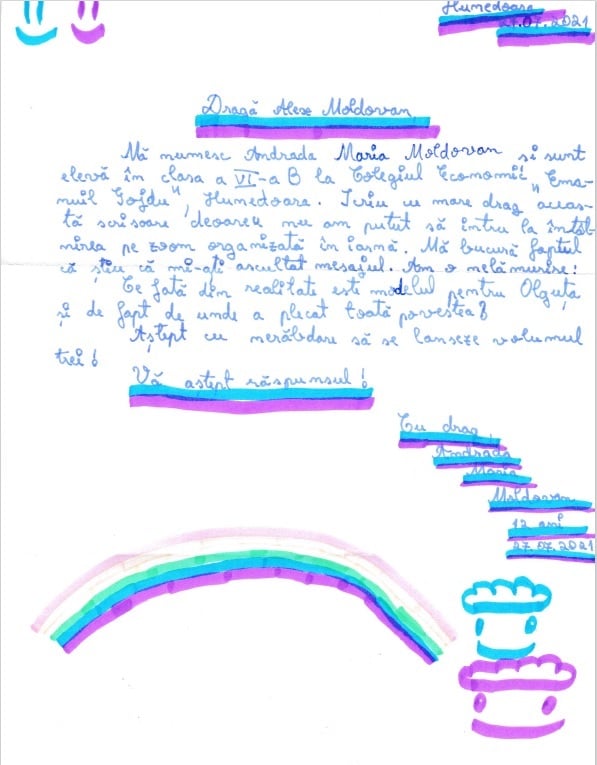 Hunedoara
27.07.2021
Dragă Alex Moldovan,
Mă numesc Andrada Maria Moldovan și sunt
elevă în clasa a VI-a B la Colegiul Economic „Ema-
nuil Gojdu", Hunedoara. Scriu cu mare drag aceas-
tă scrisoare deoarece nu am putut să intru la întâl-
nirea pe zoom organizată în iarnă. Mă bucură faptul
că știu că mi-ați ascultat mesajul. Am o nelămurire:
Ce fată din realitate este modelul pentru Olguța
și de fapt de unde a plecat toată povestea?
Aștept cu nerăbdare să se lanseze volumul
trei!
Vă aștept răspunsul!
Cu drag,
Andrada
Maria
Moldovan
12 ani
27.07.2021